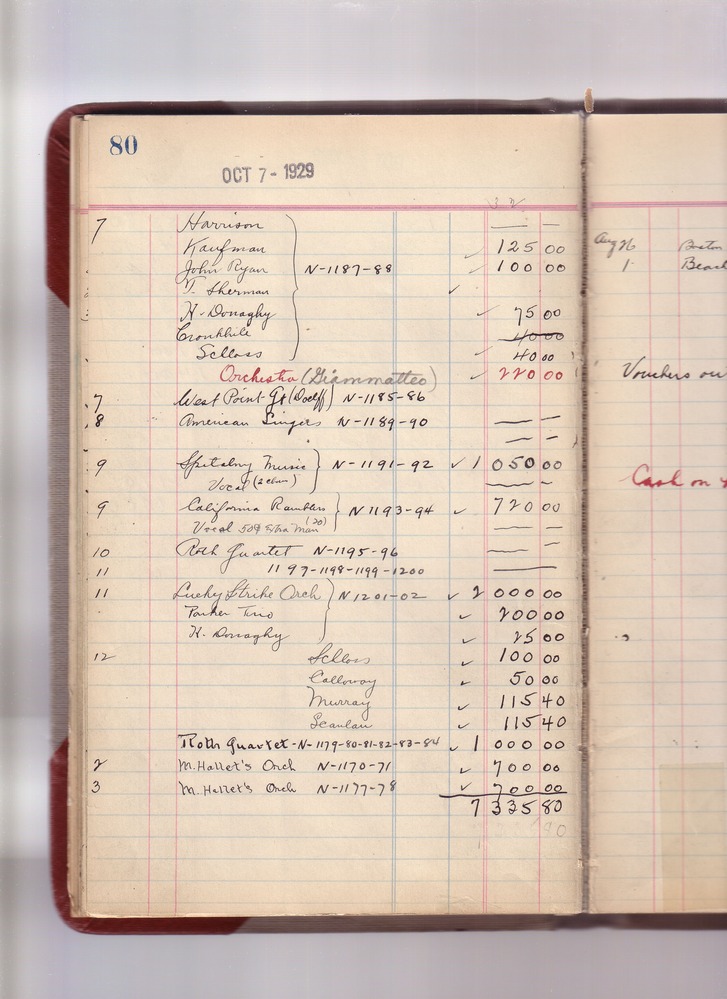 80
OCT 7 - 1929
7 Harrison — —
Kaufman ✓ 125 00
John Ryan N-1187-88 ✓ 100 00
T. Sherman ✓
H. Donaghy ✓ 75 00
Cronkhite 40 00
Schloss ✓ 40 00
Orchestra (Giammatteo) ✓ 220 00
7 West Point Gt (Doelff) N-1185-86
8 American Singers N-1189-90 — —
— —
9 Spitalny Music N-1191-92 ✓ 1 050 00
Vocal (2 chor) — —
9 California Ramblers N 1193-94 ✓ 720 00
Vocal 50¢ Extra Man (20) — —
10 Roth Quartet N-1195-96 — —
11 1197-1198-1199-1200 —
11 Lucky Strike Orch N1201-02 ✓ 2 000 00
Parker Trio ✓ 200 00
H. Donaghy ✓ 25 00
12 Schloss ✓ 100 00
Calloway ✓ 50 00
Murray ✓ 115 40
Scanlan ✓ 115 40
Roth Quartet - N-1179-80-81-82-83-84 ✓ 1 000 00
2 M. Hallet's Orch N-1170-71 ✓ 700 00
3 M. Hallet's Orch N-1177-78 ✓ 700 00
7 335 80
Aug 26 Boston
1 Beach
Vouchers
Cash on